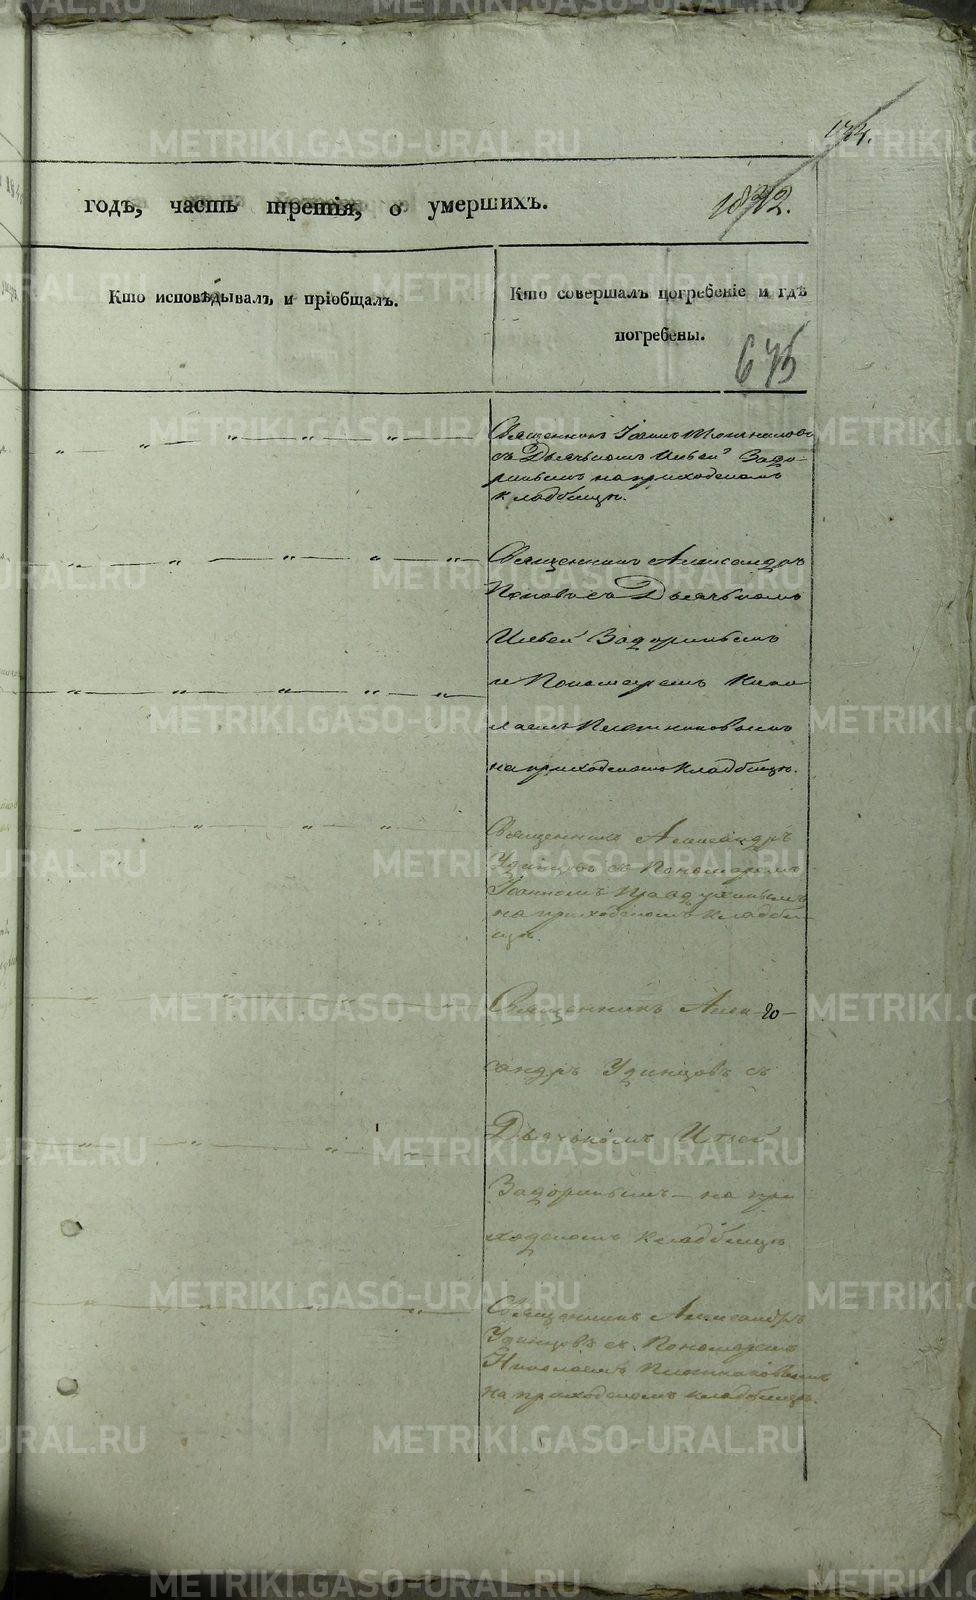 годъ, часть третія, о умершихъ.
Кто исповѣдывалъ и пріобщалъ.
Кто совершалъ погребеніе и гдѣ
погребены.
675
Священникъ Іоаннъ
съ Дьячкомъ Ильей Задо-
ринымъ на приходскомъ
кладбищѣ.
Священникъ Александръ
Поповъ съ Дьячкомъ
Ильей Задоринымъ
и Пономаремъ Нико
лаемъ Плотниковымъ
на приходскомъ кладбищѣ.
Священникъ Александръ
Удинцовъ съ Пономаремъ
Іоанномъ
на приходскомъ кладби-
щѣ.
Священникъ Алек-
сандръ Удинцовъ съ
Дьячкомъ Ильей
Задоринымъ на при
ходскомъ кладбищѣ
Священникъ Александръ
Удинцовъ съ Пономаремъ
Николаемъ Плотниковымъ
на приходскомъ кладбищѣ.
METRIKI.GASO-URAL.RU